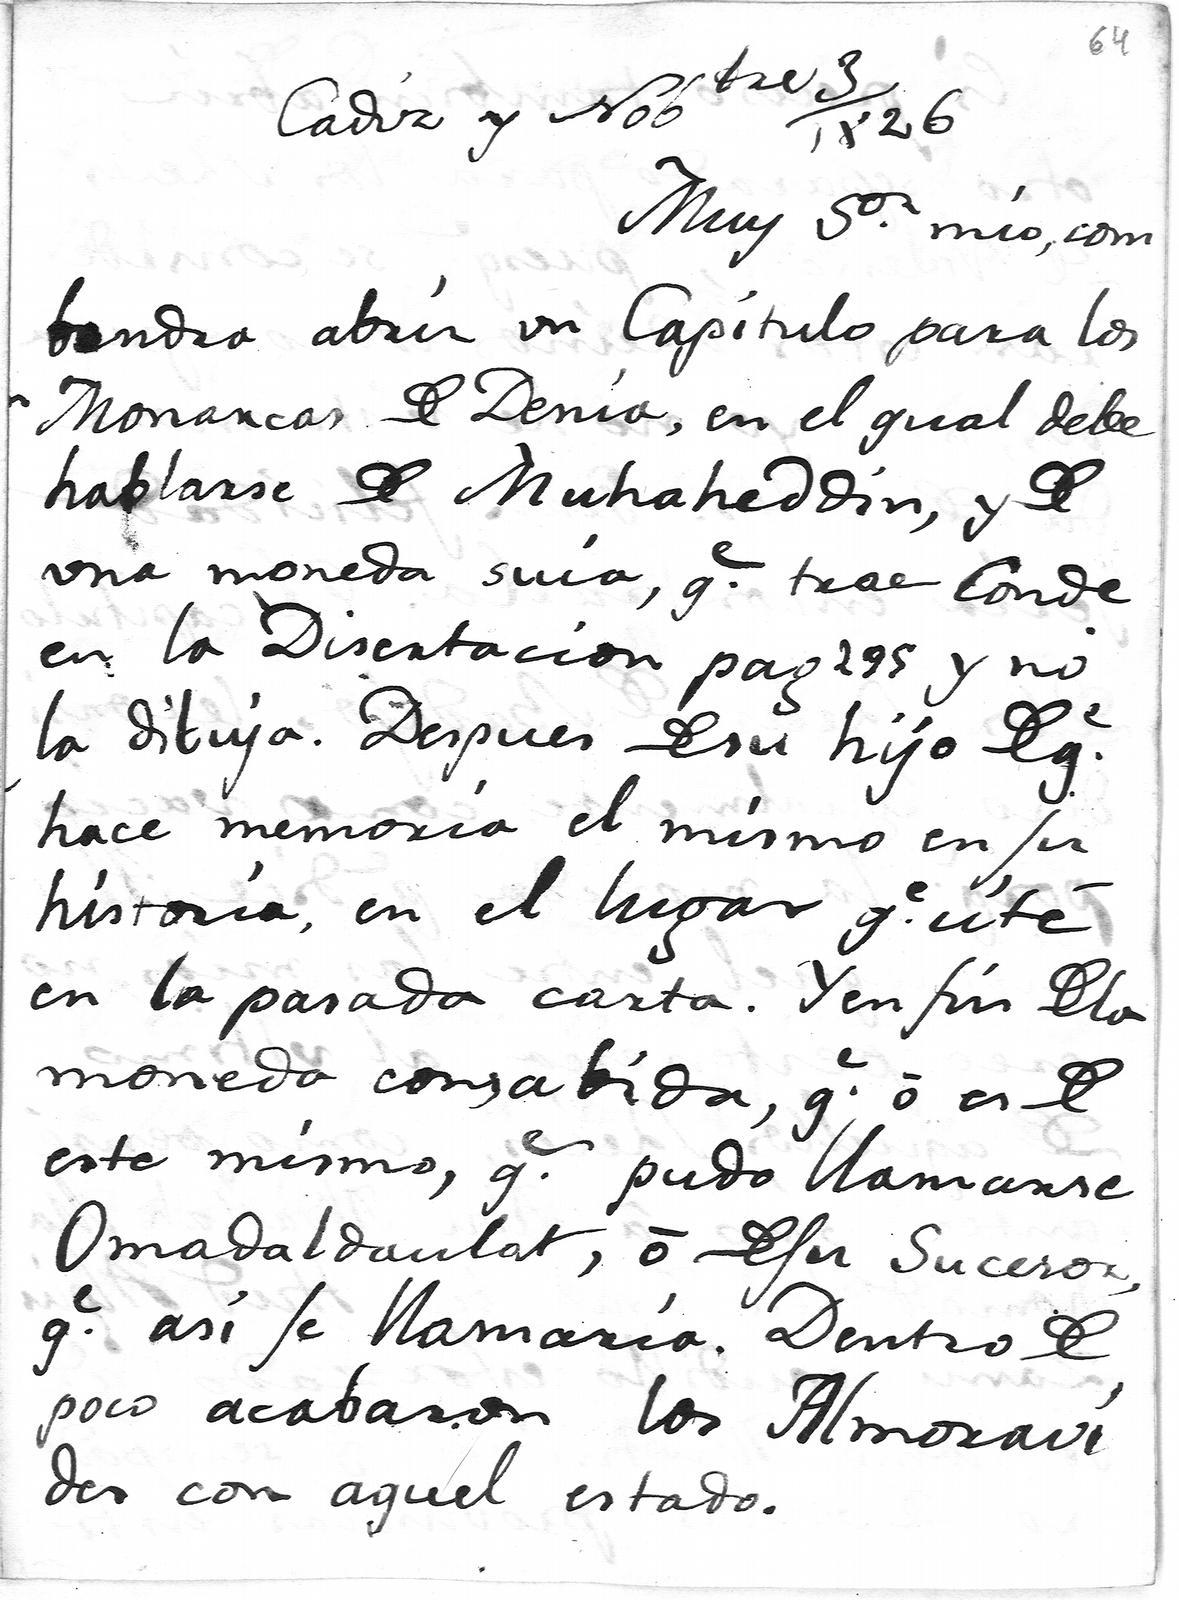 64
Cadiz y Nob^tre 3/1826
Muy S^or. mio, com
bendra abrir un Capitulo para los
Monarcas de Denia, en el qual debe
hablarse de Muhaheddin, y de
una moneda suia, q^e. trae Conde
en la Disertacion pag 295 y no
la dibuja. Despues de su hijo de q^e.
hace memoria el mismo en su
historia, en el lugar q^e. cité
en la pasada carta. Y en fin de la
moneda consabida, q^e. ō es de
este mismo, q^e. pudo llamarse
Omadaldaulat, ō de su Sucesor,
q^e. asi se llamaria. Dentro de
poco acabaron los Almoravi
des con aquel estado.